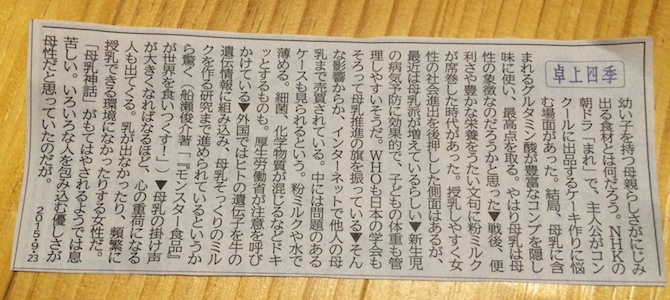 卓上四季
幼い子を持つ母親らしさがにじみ
出る食材とは何だろう。NHKの
朝ドラ「まれ」で、主人公がコン
クールに出品するケーキ作りに悩
む場面があった。結局、母乳に含
まれるグルタミン酸が豊富なコンブを隠し
味に使い、最高点を取る。やはり母乳は母
性の象徴なのだろうかと思った▼戦後、便
利さや豊かな栄養をうたい文句に粉ミルク
が席巻した時代があった。授乳しやすく女
性の社会進出を後押しした側面はあるが、
最近は母乳派が増えているらしい▼新生児
の病気予防に効果的で、子どもの体重も管
理しやすいそうだ。WHOも日本の学会も
そろって母乳推進の旗を振っている▼そん
な影響からか、インターネットで他人の母
乳まで売買されている。中には問題のある
ケースも見られるという。粉ミルクや水で
薄める。細菌、化学物質が混じるなどドキ
ッとするものも。厚生労働省が注意を呼び
かけている▼外国ではヒトの遺伝子を牛の
遺伝情報に組み込み、母乳そっくりのミル
クを作る研究まで進められているというか
ら驚く（船瀬俊介著「『モンスター食品』
が世界を食いつくす！」）▼母乳の掛け声
が大きくなればなるほど、心の重荷になる
人も出てくる。乳が出なかったり、頻繁に
授乳できる環境になかったりする女性だ。
「母乳神話」がもてはやされるようでは息
苦しい。いろいろな人を包み込む優しさが
母性だと思っていたのだが。
2015・9・23